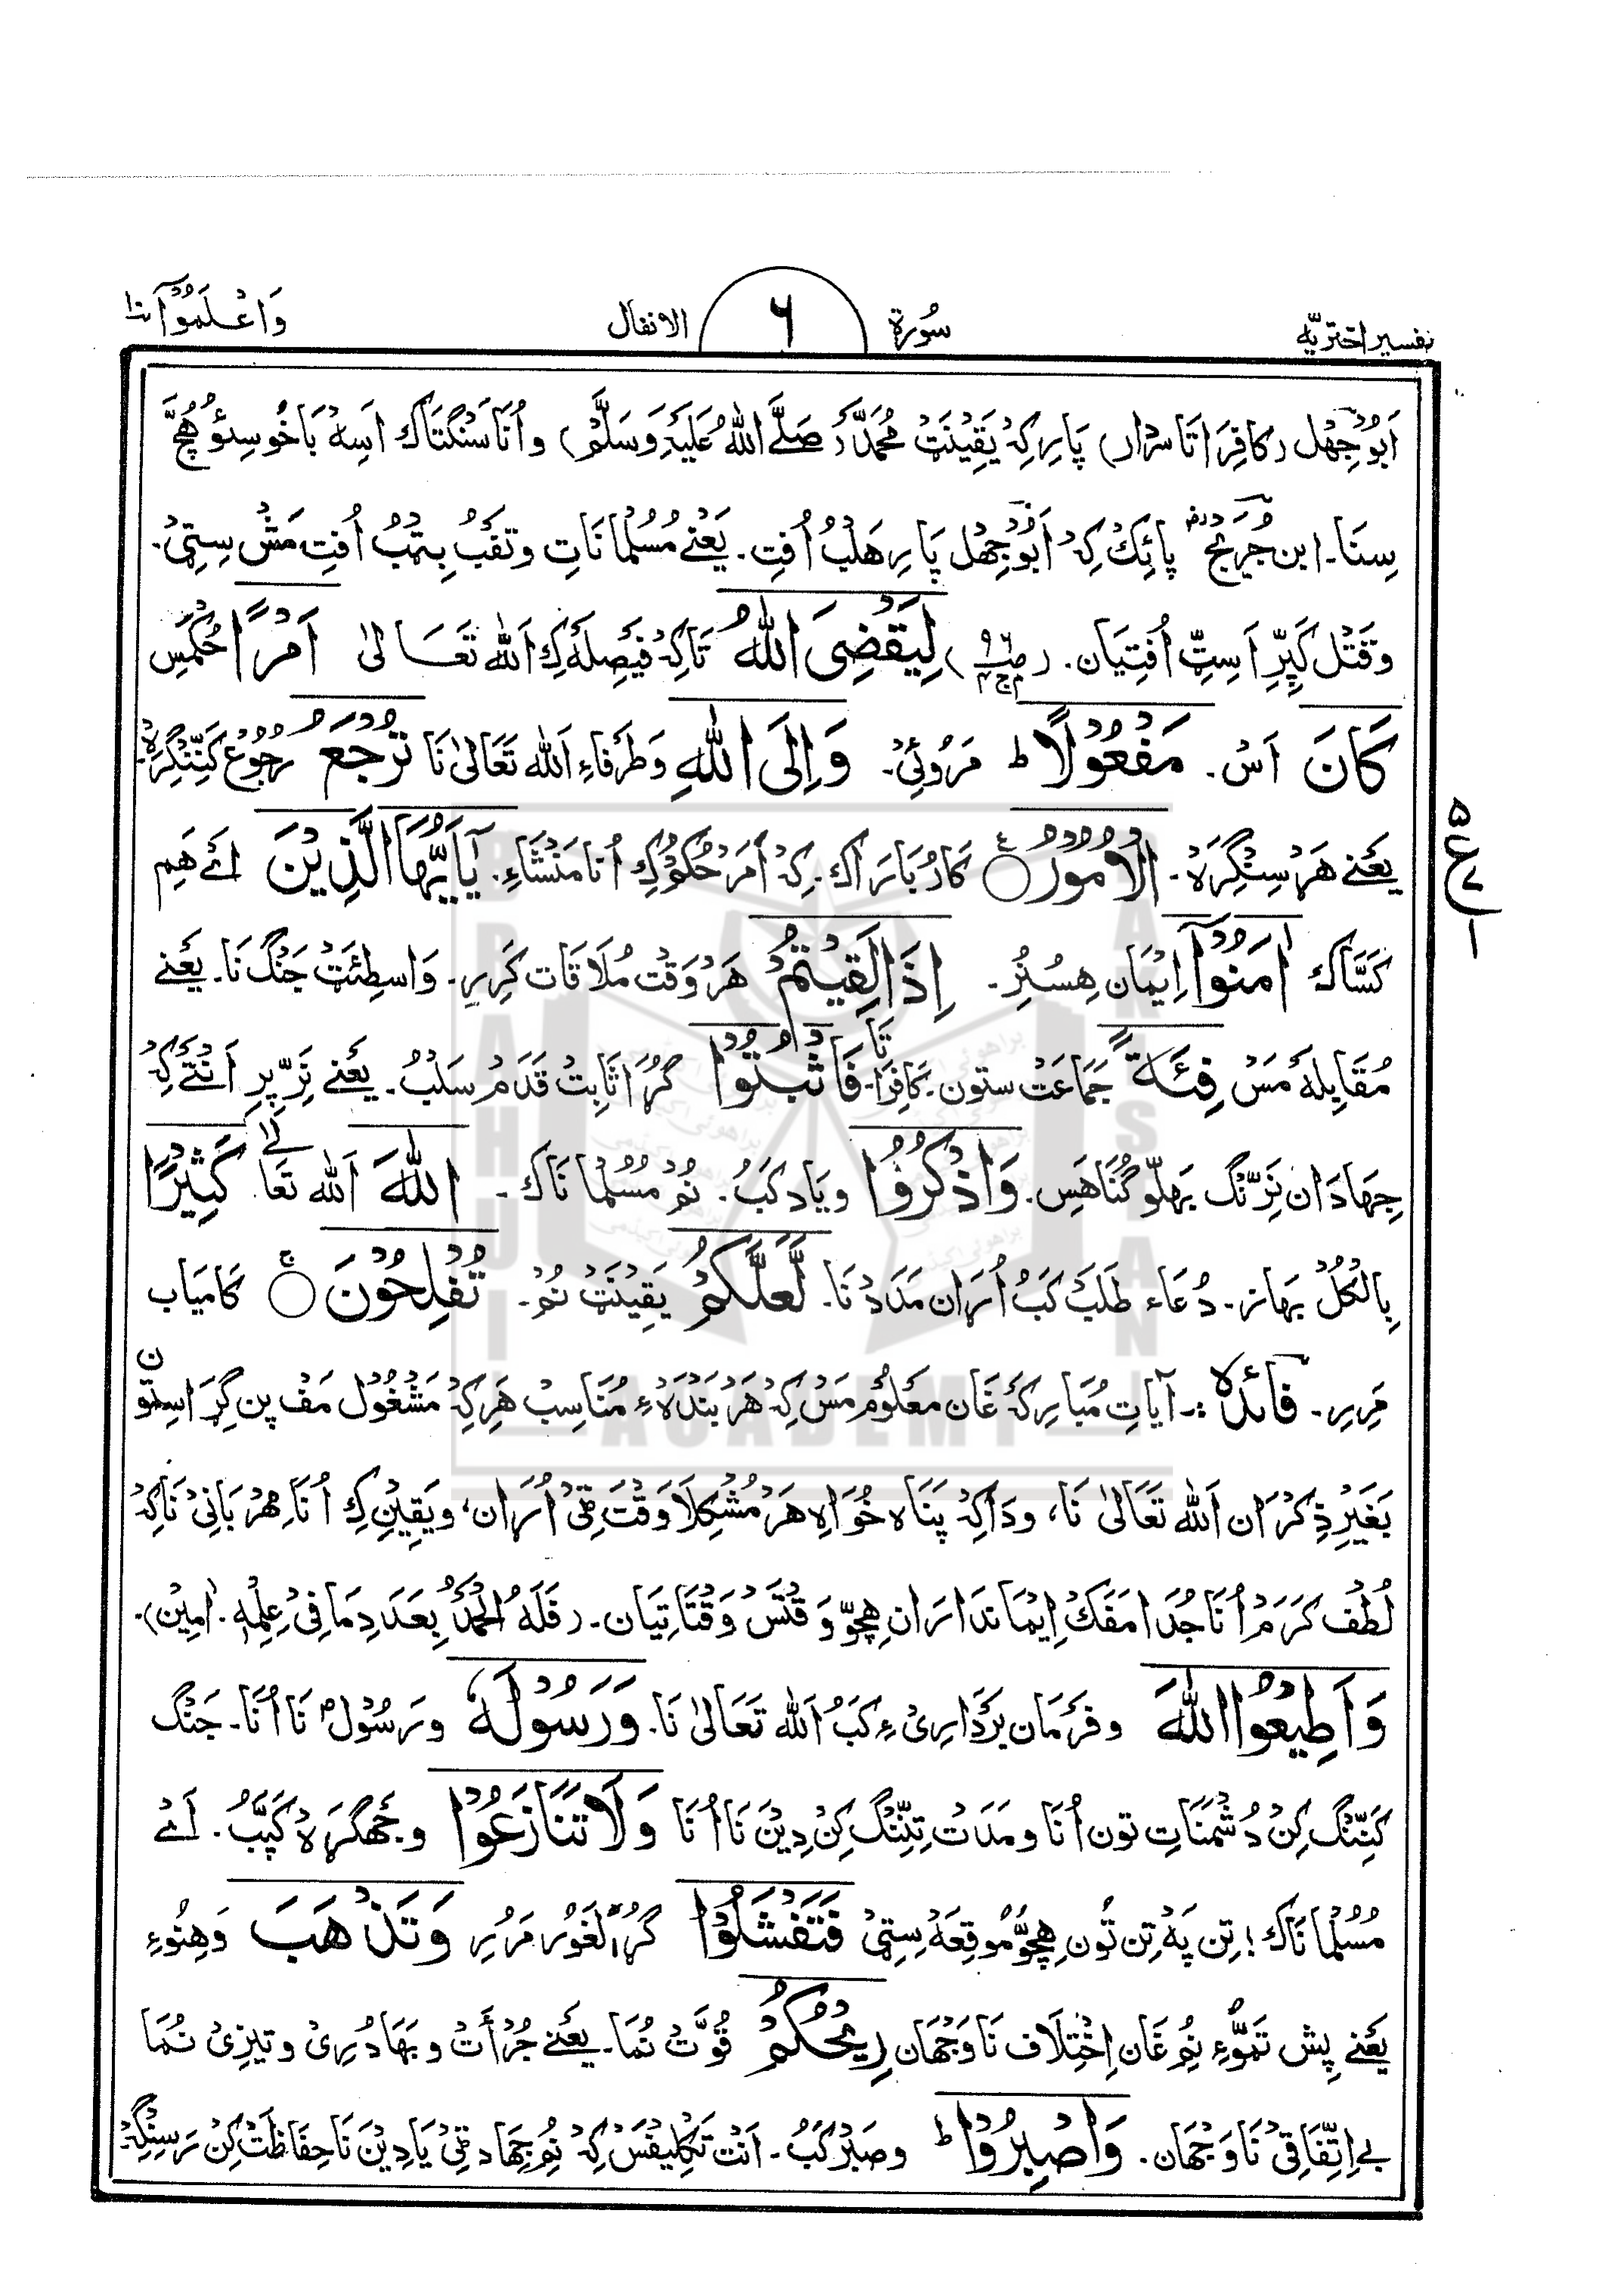 تفسیر اختریّه
سُورة ۶ الانفال
وَاعْلَمُوٓا ۱۰
اَبُوْجِهْل (کافِرَاتَا سرْدار) پَارِر کِهْ یَقِیْنَتْ مُحَمَّدْ (صَلَّے اللّٰهُ عَلَیْهِ وَسَلَّمْ) و اُنَا سَنْگتَاک اَسِهْ بَاخُوسِئوْ هُچَّ
سِنَا۔ ابن جُرَیْج پائِکْ کِهْ اَبُوْجِهْل پَارِر هَلْبُ اُفْتِ۔ یَعْنے مُسُلْمانَاتِ و تَفْبُ بِتْبُ اُفْتِ مَشْ سِتِیْ۔
و قَتْل کَپِرِّ اَسِتِّ اُفْتِیَان۔ لِیَقْضِیَ اللّٰهُ تَاکِهْ فَیْصِلَهْ کِ اَللّٰه تَعَالیٰ اَمْرًا حُکْمَسِ
کَانَ اَسْ۔ مَفْعُوْلًا ط مَرْوُئِیْ۔ وَاِلَی اللّٰهِ وَطَرْفَاءِ اَللّٰه تَعَالیٰ نَا تُرْجَعُ رُجُوْع کَنِّنْگِرَهْ
یَعْنے هَرْسِنْگِرَهْ۔ الْاُمُوْرُ ○ کَارُبَارَاک۔ کِهْ اَمْرْ حُکْمُ کِ اُنَا مَنْشَاءِ۔ یٰٓاَیُّهَا الَّذِیْنَ اَئے هَمِ
کَسَّاک اٰمَنُوْٓا اِیْمَان هِسُنُرِ۔ اِذَا لَقِیْتُمْ هَرْوَقْت مُلَاقَات کَرِیرِ۔ وَاسِطِئَتْ جَنْگ نَا۔ یَعْنے
مُقَابِلَهْ مَسْ فِئَةً جَمَاعَتْ ستون۔ کَافِرَاتَا۔ فَاثْبُتُوْا گُڑَا ثَابِتْ قَدَمْ سَلْبُ۔ یَعْنے نَرِّپَرِ اَنْتَئے کِهْ
جِهَادَان نَرِّنْگ بَهَلّو گُنَاهَسِ۔ وَاذْکُرُوا و یَاد کَبُ۔ نُمْ مُسُلْمانَاک۔ اللّٰهَ اَللّٰه تَعَالے کَثِیْرًا
بِالْکُلْ بَهَاز۔ دُعَاء طَلَبْ کَبُ اُرَان مَدَدْ نَا۔ لَّعَلَّکُمْ یَقِیْنَتْ نُمْ۔ تُفْلِحُوْنَ ○ کَامْیَاب
مَرِیرِ۔ فَائدة :۔ آیَاتِ مُبَارِکَهْ غَان مَعْلُوْم مَسْ کِهْ هَرْ بَنْدَهْءِ مُنَاسِبْ هَرِکِهْ مَشْغُوْل مَف پن گِرَاسِتّون
بَغَیْرِ ذِکْرَان اَللّٰه تَعَالیٰ نَا، ودَاکِهْ پَنَاه خُوَاهِ هَرْ مُشْکِلَا وَقْتَ مِّیْ اُرَان، و یَقِیْن کِ اُنَا مِهْرَبَانِیْ نَا کِهْ
لُطْفْ کَرَمْ اُنَا جُدَا مَفَکْ اِیْمَاندَارَان هِچّو وَقْتَسْ وَقْتَاتِیَان۔ (فَلَهُ الْحَمْدُ بِعَدَدِ مَا فِیْ عِلْمِهٖ۔ اٰمِیْن)۔
وَاَطِیْعُوا اللّٰهَ و فَرْمَان بَرْدَارِیْ ءِ کَبُ اَللّٰه تَعَالیٰ نَا۔ وَرَسُوْلَهٗ و رَسُوْلْ نَا اُنَا۔ جَنْگ
کَنِّنْگ کِنْ دُشْمَنَاتِ تون اُنَا و مَدَتْ تِنِّنْگ کِنْ دِیْنْ نَا اُنَا وَلَا تَنَازَعُوْا و جھگرَهْ کَپَّبُ۔ اَئے
مُسُلْمانَاک! تِن پَهْ تِن تُون هِچّوْ مُوقِعَهْ سِتِیْ فَتَفْشَلُوْا گُڑَا لَغَوْر مَرُیرِ وَتَذْهَبَ وَهِنُوءِ
یَعْنے پِش تَمّوْءِ نُمْ غَان اِخْتِلَاف نَا وَجْهَان رِیْحُکُمْ قُوَّتْ نُمَا۔ یَعْنے جُرْأَتْ و بَهَادُرِیْ و تِیزِیْ نُمَا
بے اِتِّفَاقِیْ نَا وَجْهَان۔ وَاصْبِرُوْا ط و صَبْر کَبُ۔ اَنْتْ تَکْلِیْفَسْ کِهْ نُمْ جِهَاد مِّیْ یَا دِیْن نَا حِفَاظَتْ کِنْ رَسِنْگِهْ
۵
ع
۷
۱
BRAHUI
AKHSHAN
ACADEMY